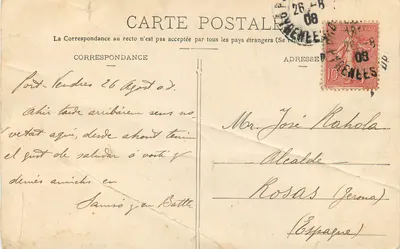 CARTE POSTALE
La Correspondance au recto n'est pas acceptée par tous les pays étrangers (Se
CORRESPONDANCE
ADRESSE
26 -8
08
PYRENEES
Port-Vendres 26 Agost 07
Ahir tarde arribarem sens no
vetat aqui, desde ahont tenim
el gust de saludar à vosté y
demés amichs en
Mr. José Rahola
Alcalde
Rosas (Gerona)
(Espagne)